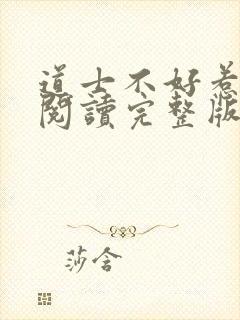 道士不好惹
閱讀完整版
莎含